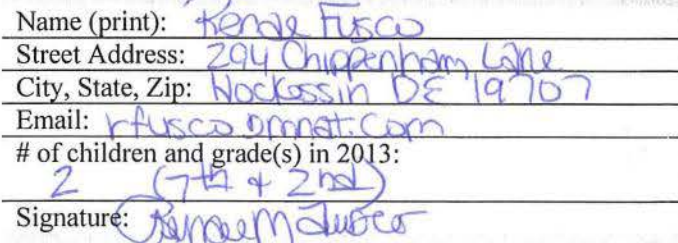 Name (print): Renae Fusco
Street Address: 294 Chippenham Lane
City, State, Zip: Hockessin DE 19707
Email:
# of children and grade(s) in 2013:
2 (7th + 2nd)
Signature: